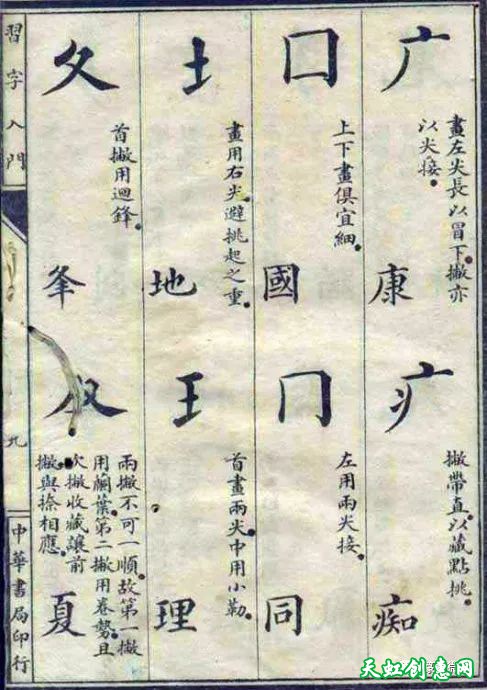 广
畫左尖長以冒下。撇亦
以尖接。
康
疒
撇帶直。以藏點挑。
痴
囗
上下畫俱宜細。
國
冂
左用兩尖接。
同
土
畫用右尖。避挑起之重。
地
王
首畫兩尖。中用小勒。
理
夂
首撇用迴鋒。
夆
兩撇不可一順。故第一撇
用蘭葉。第二撇用卷勢。且
次撇收藏讓前
撇。與捺相應。
夏
習字入門
九
中華書局印行
天虹创意网